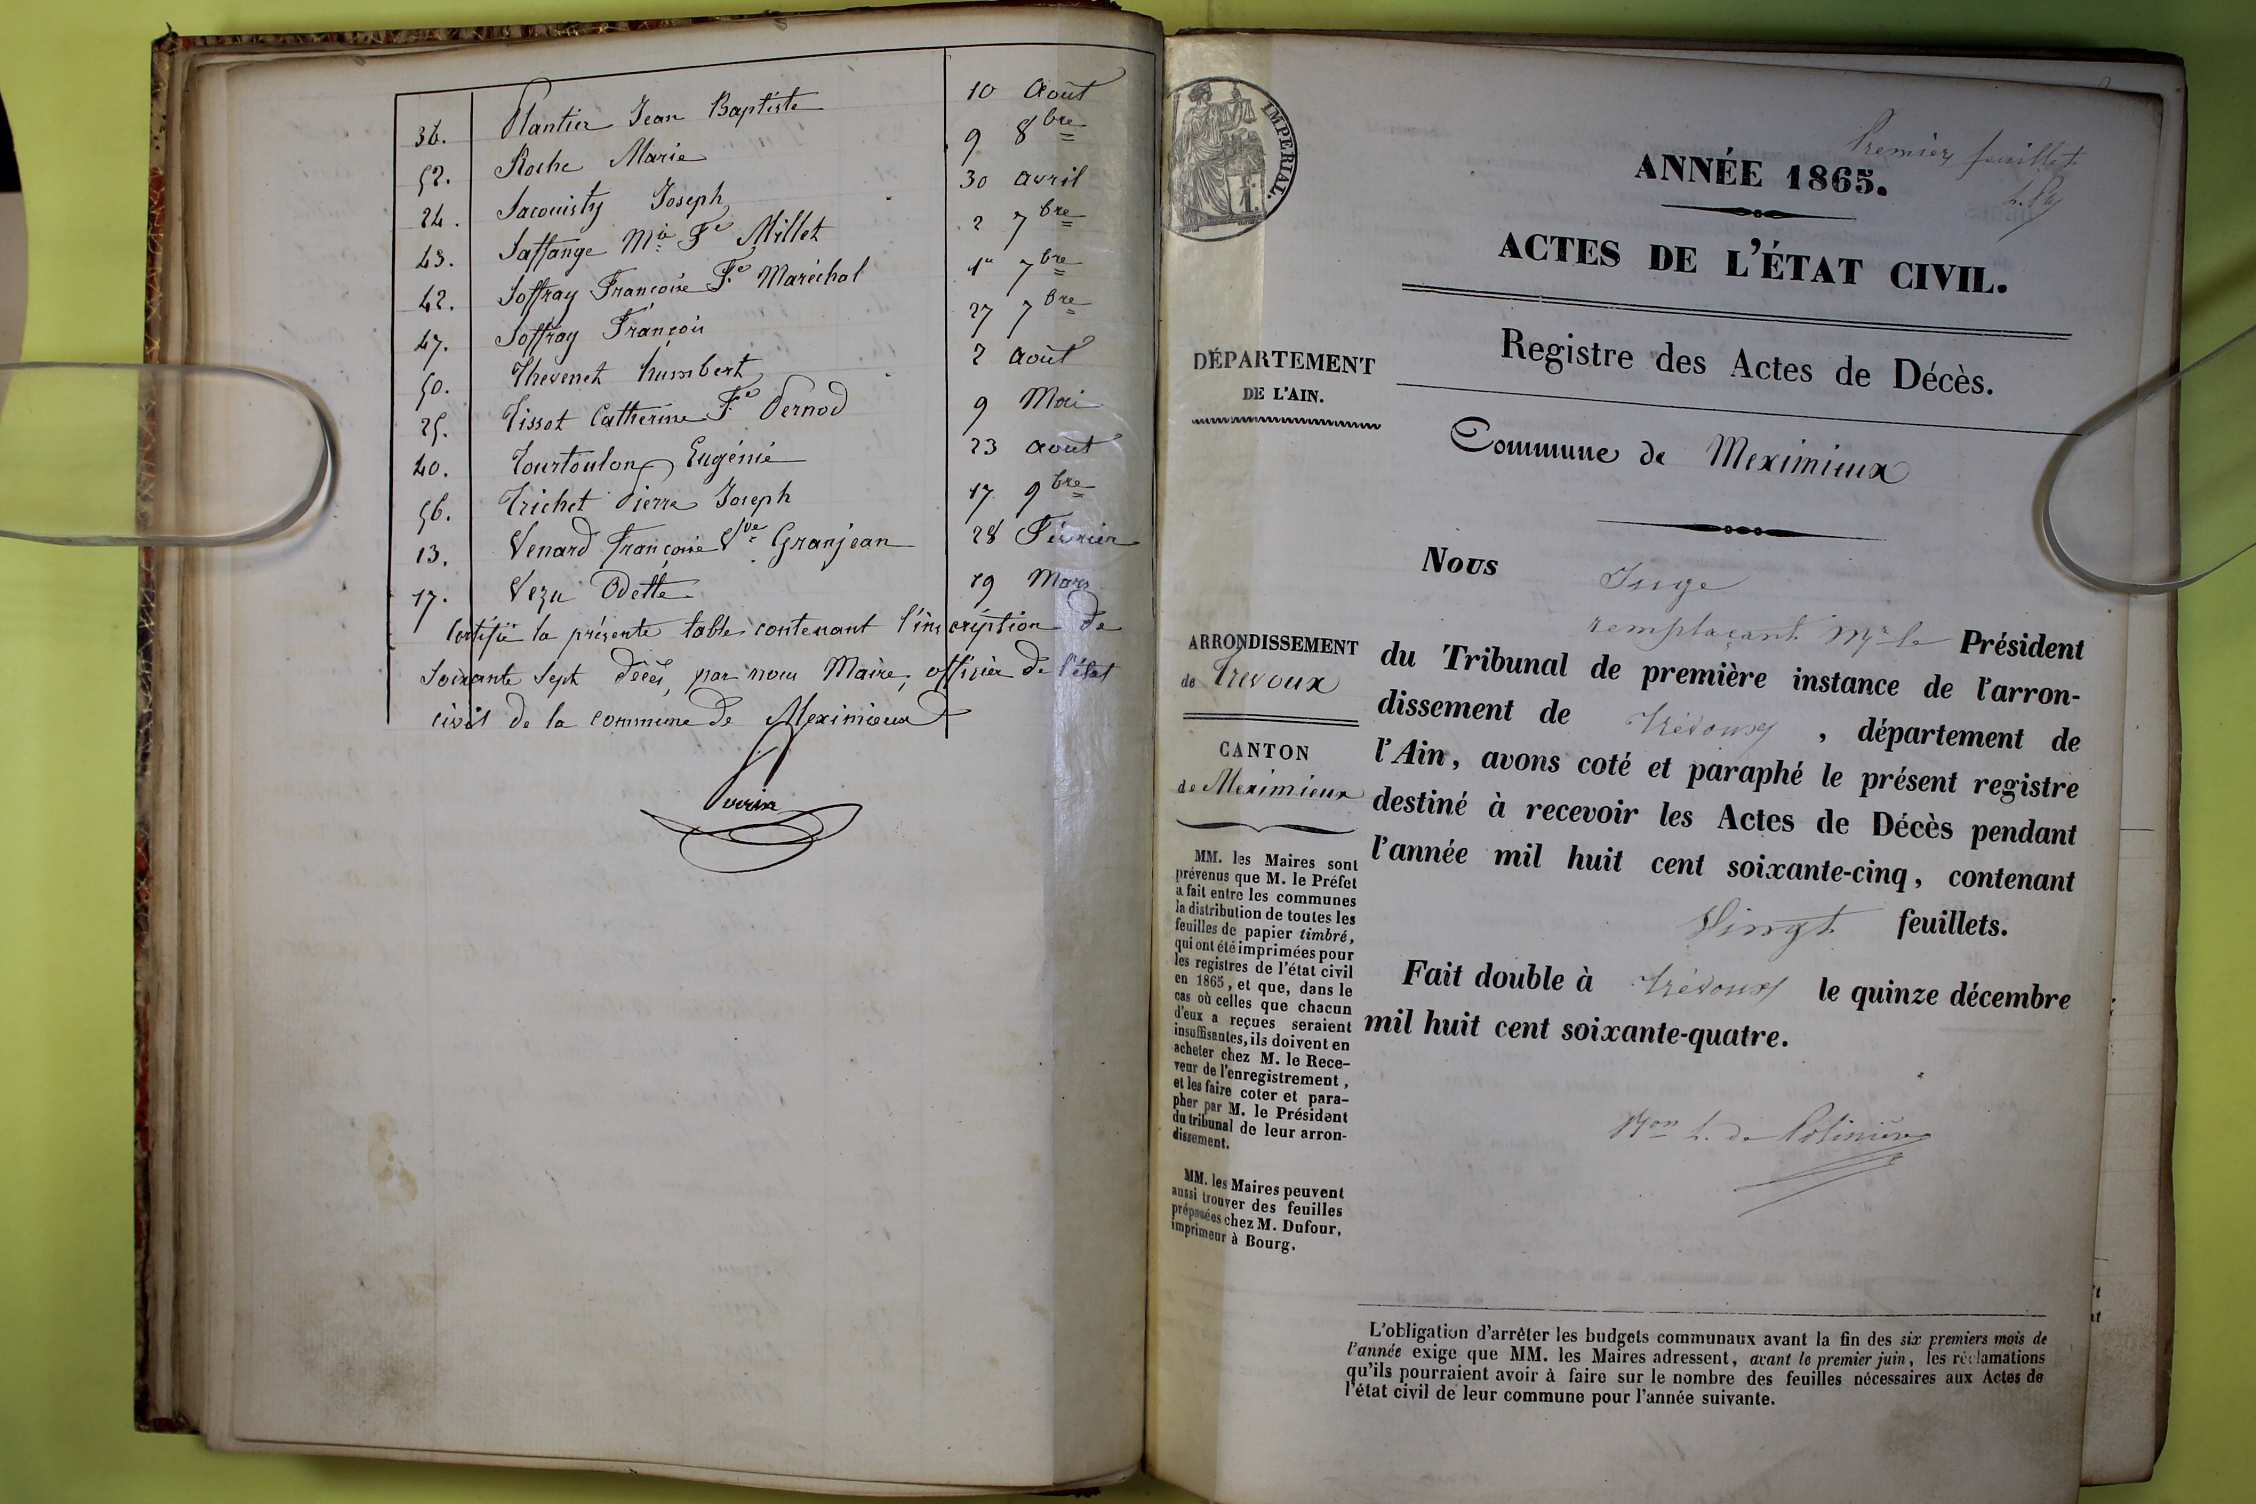 36. Plantier Jean Baptiste 10 Août
52. Roche Marie 9 8bre
24. Sacouisty Joseph 30 avril
43. Saffange Mie Fe Millet 2 7bre
42. Soffray Françoise Fe Maréchal 1er 7bre
47. Soffray François 27 7bre
50. Thevenet humbert 2 août
25. Tissot Catherine Fe Pernod 9 Mai
40. Tourtoulon Eugénie 23 août
56. Trichet Pierre Joseph 17 9bre
13. Venard françoise Vve Granjean 28 Février
17. Vezu Odette 19 Mars
Certifié la présente table contenant l'inscription de
soixante sept décès, par nous Maire, officier de l'état
civil de la commune de Meximieux
Perrin
IMPERIAL.
1f.
Premier feuillet
ANNÉE 1865.
ACTES DE L'ÉTAT CIVIL.
Registre des Actes de Décès.
Commune de Meximieux
DÉPARTEMENT
DE L'AIN.
ARRONDISSEMENT
de Trévoux
CANTON
de Meximieux
MM. les Maires sont
prévenus que M. le Préfet
a fait entre les communes
la distribution de toutes les
feuilles de papier timbré,
qui ont été imprimées pour
les registres de l'état civil
en 1865, et que, dans le
cas où celles que chacun
d'eux a reçues seraient
insuffisantes, ils doivent en
acheter chez M. le Rece-
veur de l'enregistrement,
et les faire coter et para-
pher par M. le Président
du tribunal de leur arron-
dissement.
MM. les Maires peuvent
aussi trouver des feuilles
préposées chez M. Dufour,
imprimeur à Bourg.
Nous Juge
remplaçant Mr le Président
du Tribunal de première instance de l'arron-
dissement de Trévoux, département de
l'Ain, avons coté et paraphé le présent registre
destiné à recevoir les Actes de Décès pendant
l'année mil huit cent soixante-cinq, contenant
Vingt feuillets.
Fait double à Trévoux le quinze décembre
mil huit cent soixante-quatre.
Bon L. de Polinière
L'obligation d'arrêter les budgets communaux avant la fin des six premiers mois de
l'année exige que MM. les Maires adressent, avant le premier juin, les réclamations
qu'ils pourraient avoir à faire sur le nombre des feuilles nécessaires aux Actes de
l'état civil de leur commune pour l'année suivante.